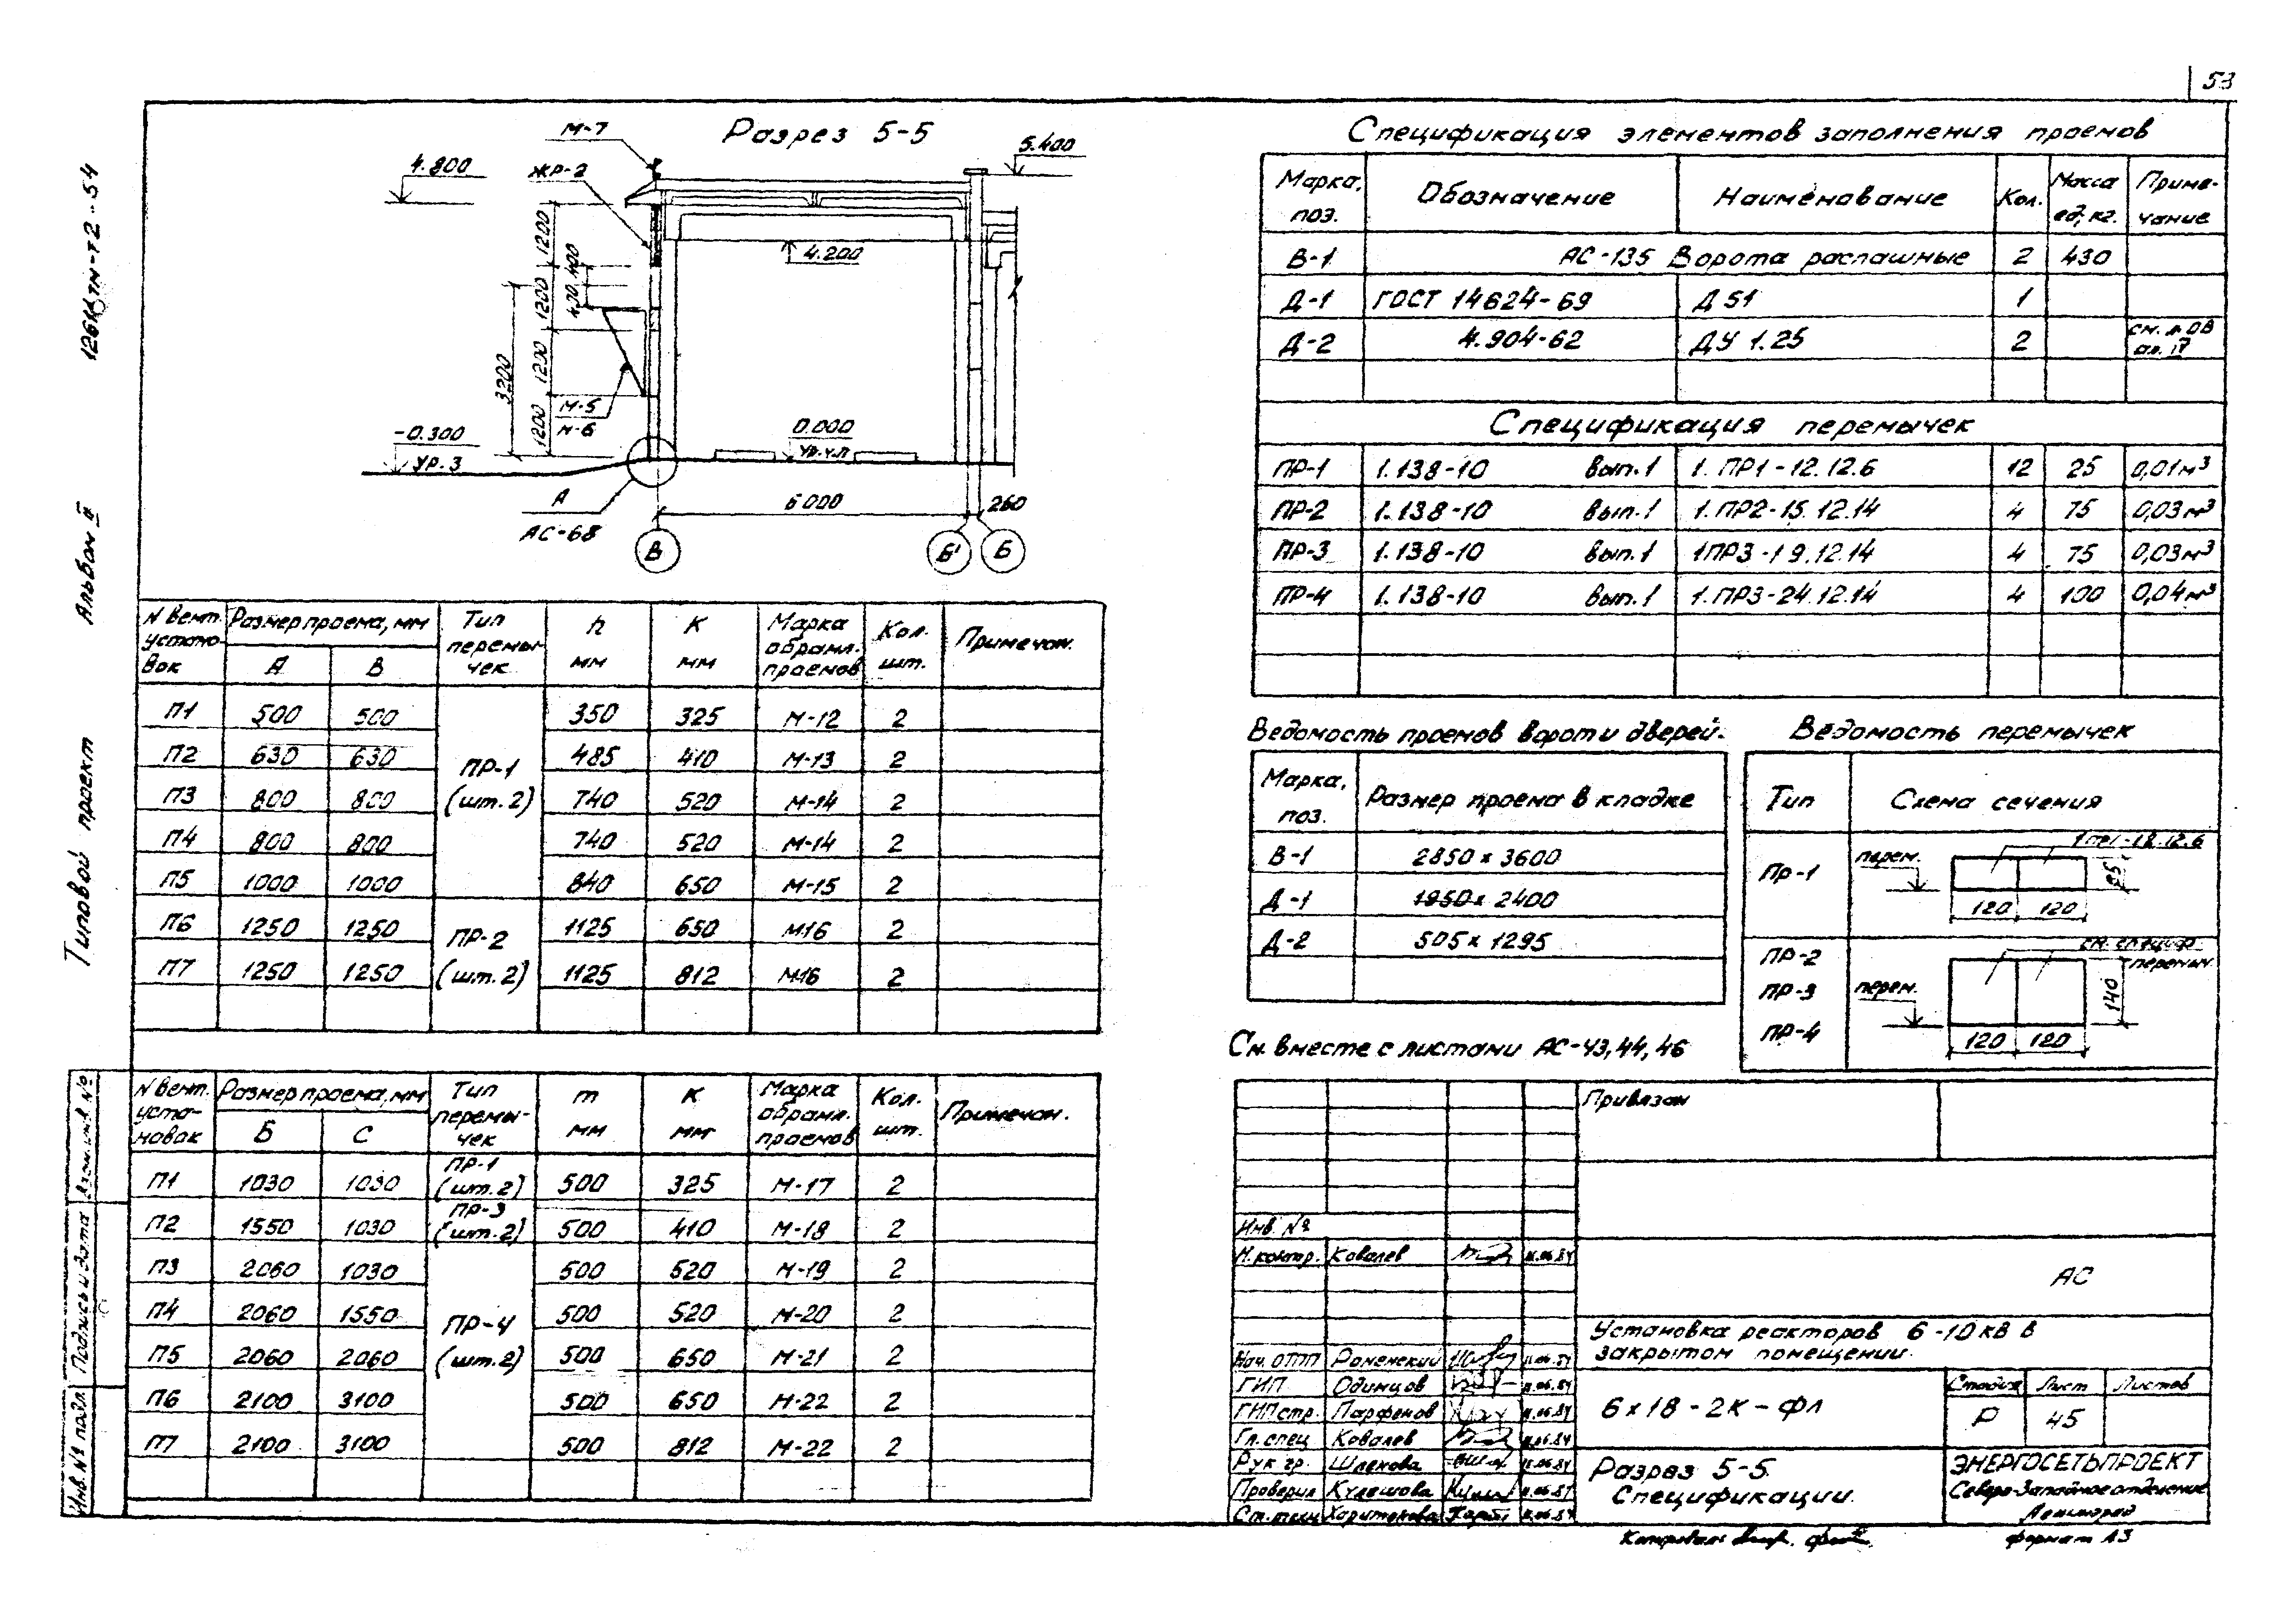 53
Типовой проект Альбом II
Разрез 5-5
М-7
ЖР-2
4.800
5.400
4.200
1200
400
400
1200
1200
1200
3200
М-5
М-6
-0.300
УР.З
0.000
УР.Ч.П
А
АС-68
6000
260
В
Б'
Б
N вент. установок Размер проема, мм Тип перемычек h мм К мм Марка обрамл. проемов Кол. шт. Примечан.
А В
П1 500 500 350 325 М-12 2
П2 630 630 485 410 М-13 2
ПР-1 (шт. 2)
П3 800 800 740 520 М-14 2
П4 800 800 740 520 М-14 2
П5 1000 1000 840 650 М-15 2
П6 1250 1250 1125 650 М16 2
ПР-2 (шт. 2)
П7 1250 1250 1125 812 М16 2
N вент. установок Размер проема, мм Тип перемычек m мм К мм Марка обрамл. проемов Кол. шт. Примечан.
Б С
П1 1030 1030 ПР-1 (шт. 2) 500 325 М-17 2
П2 1550 1030 ПР-3 (шт. 2) 500 410 М-18 2
П3 2060 1030 500 520 М-19 2
П4 2060 1550 500 520 М-20 2
ПР-4 (шт. 2)
П5 2060 2060 500 650 М-21 2
П6 2100 3100 500 650 М-22 2
П7 2100 3100 500 812 М-22 2
Взам. инв. №
Подпись и дата
Инв. № подл.
Спецификация элементов заполнения проемов
Марка, поз. Обозначение Наименование Кол. Масса ед, кг. Примечание
В-1 АС-135 Ворота распашные 2 430
Д-1 ГОСТ 14624-69 Д 51 1
Д-2 4.904-62 ДУ 1.25 2 см. ОВ
Спецификация перемычек
ПР-1 1.138-10 вып.1 1.ПР1-12.12.6 12 25 0,01м³
ПР-2 1.138-10 вып.1 1.ПР2-15.12.14 4 75 0,03м³
ПР-3 1.138-10 вып.1 1ПР3-19.12.14 4 75 0,03м³
ПР-4 1.138-10 вып.1 1.ПР3-24.12.14 4 100 0,04м³
Ведомость проемов ворот и дверей.
Марка, поз. Размер проема в кладке
В-1 2850 х 3600
Д-1 1950 х 2400
Д-2 505 х 1295
Ведомость перемычек
Тип Схема сечения
Пр-1 перем. 1 пр1-12.12.6
120 120
ПР-2
ПР-3
ПР-4
перем. см. специф. перемыч.
140
120 120
См. вместе с листами АС-43,44,46
Привязан
Инв. №
Н. контр. Ковалев 11.06.84
АС
Установка реакторов 6-10 кВ в закрытом помещении.
Нач. ОТПП Роменский 11.06.84
ГИП Одинцов 11.06.84
ГИП стр. Парфенов 11.06.84
Гл. спец Ковалев 11.06.84
Рук гр. Шлекова 11.06.84
Проверил Кулешова 11.06.84
Ст. техн Харитонова 11.06.84
6х18-2К-ФЛ
Стадия Лист Листов
Р 45
Разрез 5-5.
Спецификации.
ЭНЕРГОСЕТЬПРОЕКТ
Северо-Западное отделение
Ленинград
Копировал
формат А3